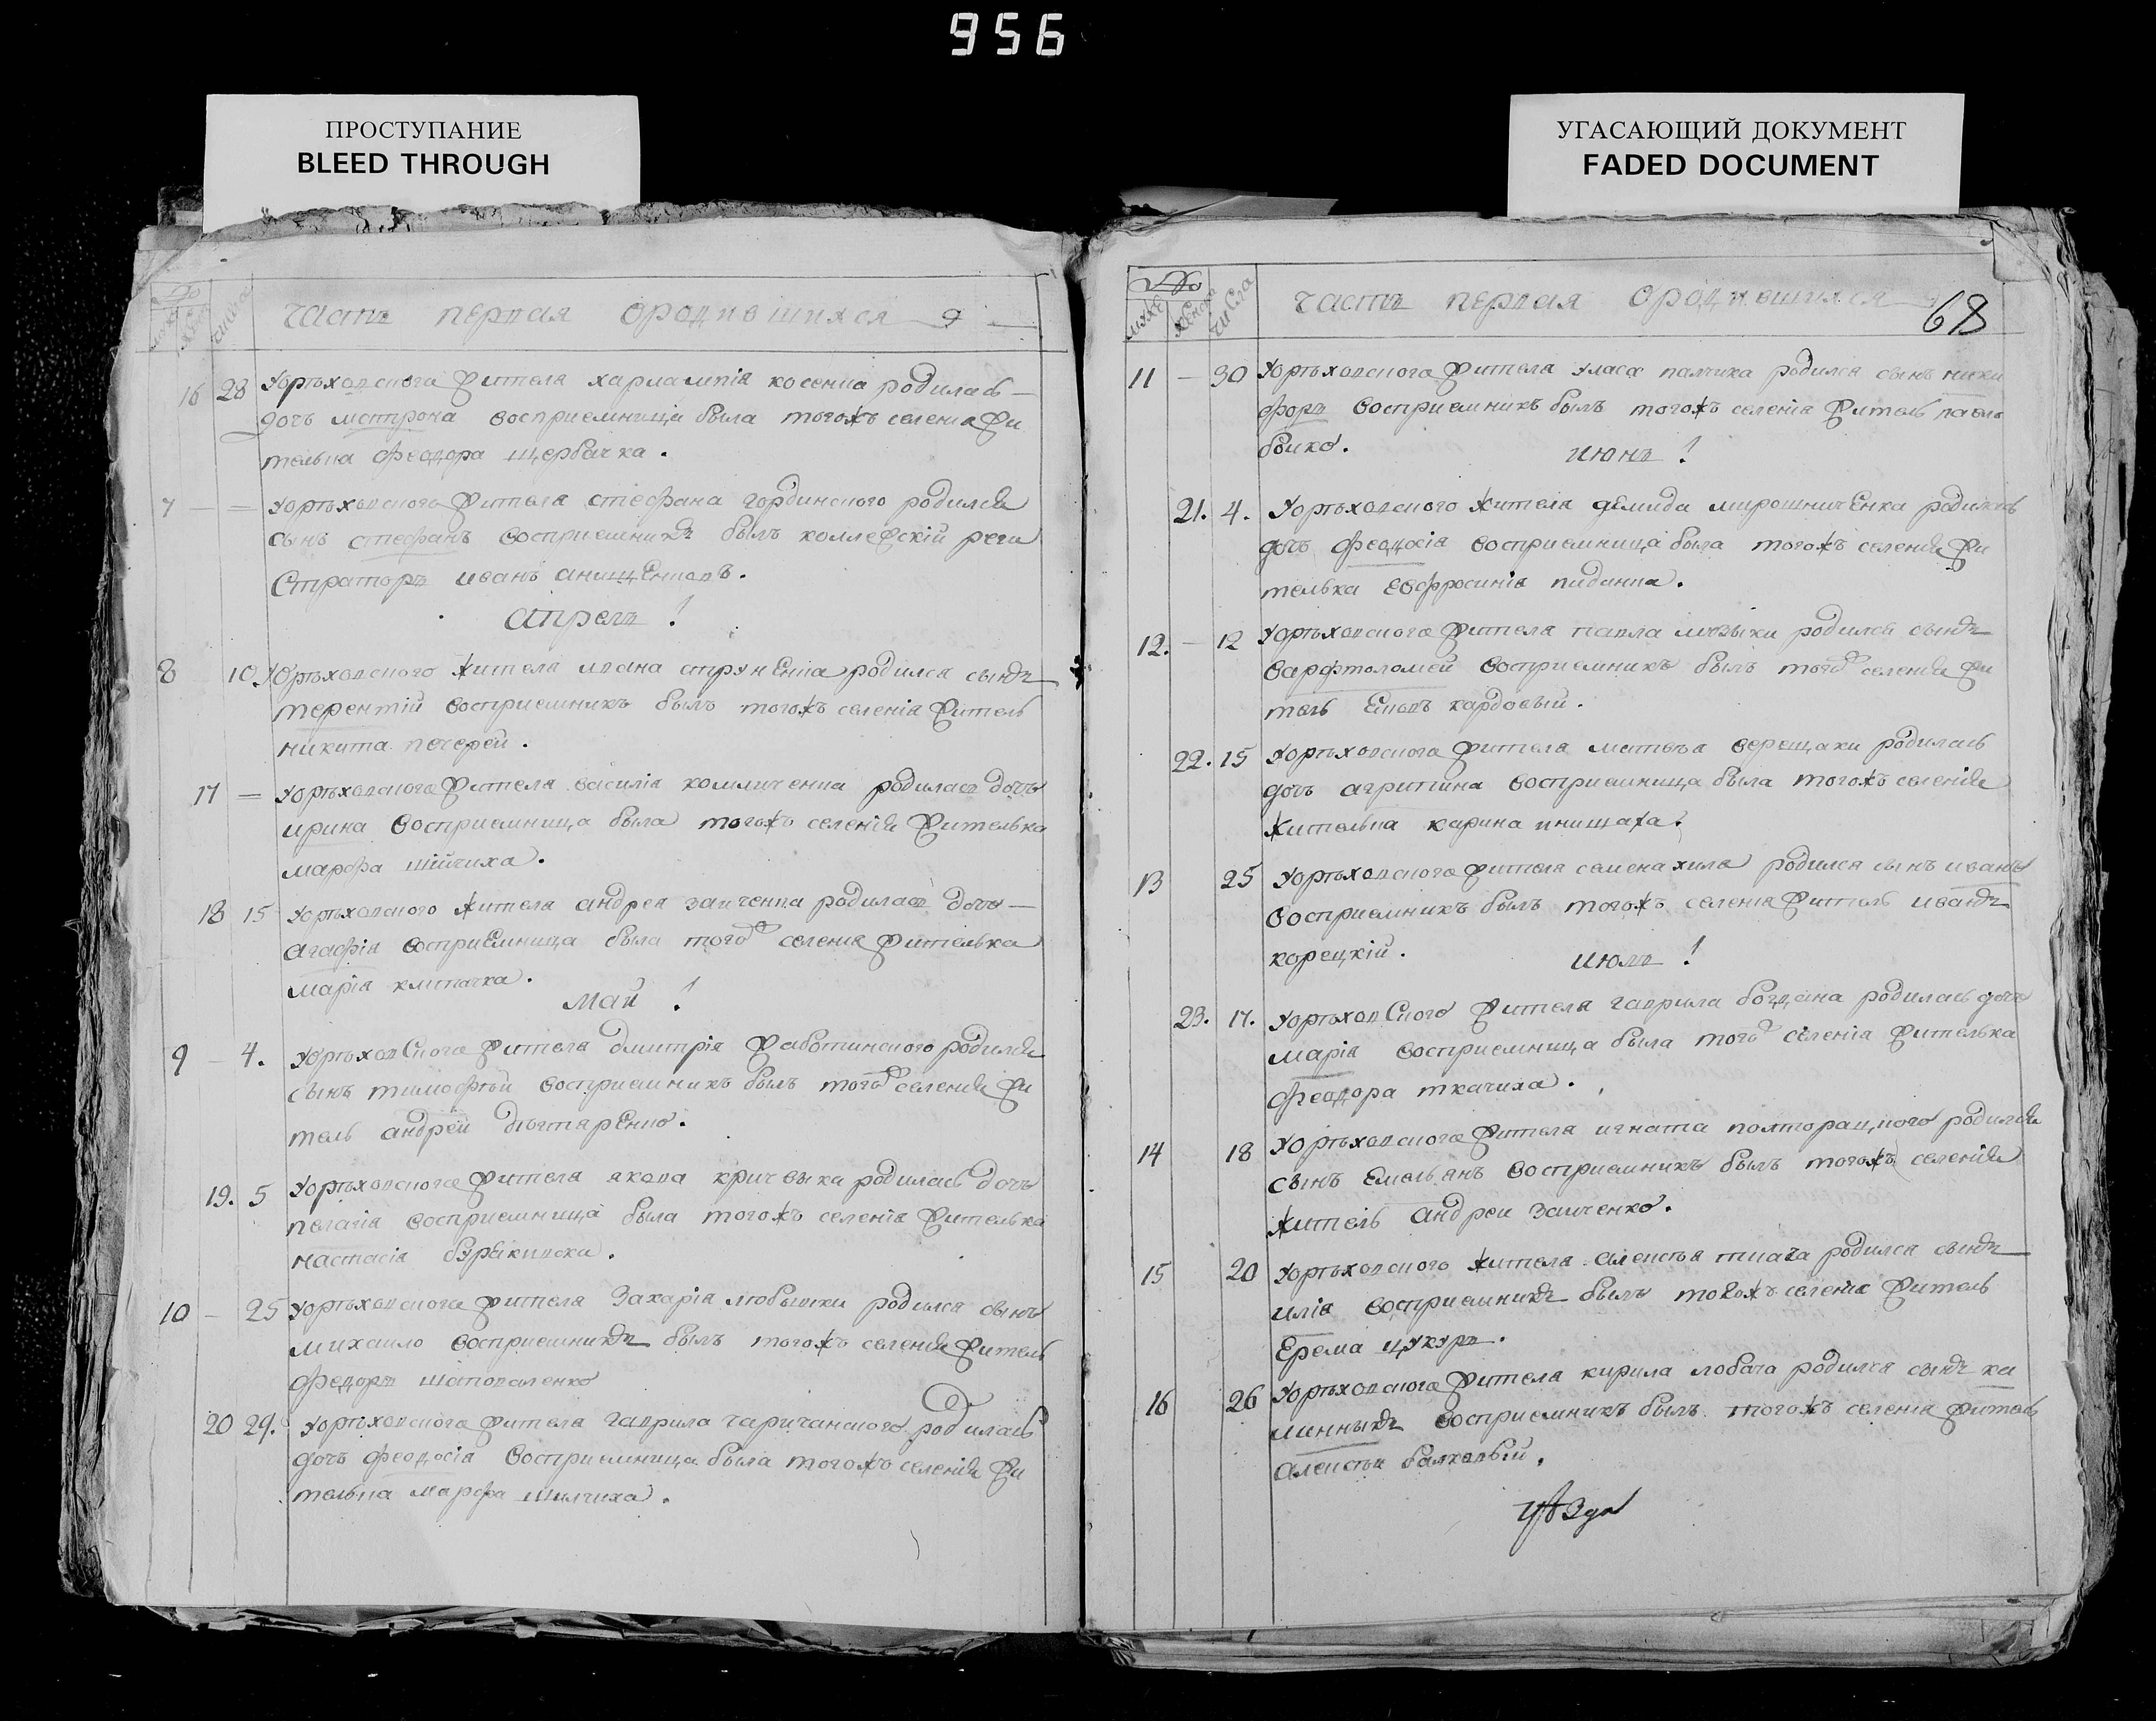 956
ПРОСТУПАНИЕ
BLEED THROUGH
УГАСАЮЩИЙ ДОКУМЕНТ
FADED DOCUMENT
№
числа
часть первая ородившихся
16 28 Уорѣховского жителя харлампія косенка родилась
дочь мотрона восприемница была тогожъ селенія жи
телька феодора щербачка.
7 — = Уорѣховского жителя стефана гординского родился
сынъ стефанъ восприемникъ былъ коллежскій реги
страторъ иванъ анищенковъ.
апрель !
8 10. Уорѣховского жителя ивана струкенка родился сынъ
терентій восприемникъ былъ тогожъ селенія житель
никита печерей.
17 = Уорѣховского жителя василія комличенка родилась дочь
ирина восприемница была тогожъ селенія жителька
марфа шійчиха.
18 15 Уорѣховского жителя андрея заиченка родилась дочь
агафія восприемница была тогожъ селенія жителька
марія клипачка.
май !
9 — 4. Уорѣховского жителя дмитрія жаботинского родился
сынъ тимофѣй восприемникъ былъ тогожъ селенія жи
тель андрей дѣгтяренко.
19. 5 Уорѣховского жителя якова кричевика родилась дочь
пелагія восприемница была тогожъ селенія жителька
настасія
10 — 25 Уорѣховского жителя захарія любишки родился сынъ
михаило восприемникъ былъ тогожъ селенія житель
федоръ шаповаленко
20 29. Уорѣховского жителя гаврила царичанского родилась
дочь феодосія восприемница была тогожъ селенія жи
телька марфа шилчиха.
№
мужс женск числа
часть первая ородившихся
68
11 — 30 Уорѣховского жителя уласа палчика родился сынъ ники
форъ восприемникъ былъ тогожъ селенія житель павелъ
бойко.
июнь !
21. 4. Уорѣховского жителя демида мирошниченка родилась
дочь феодосія восприемница была тогожъ селенія жи
телька евфросинія пидинка.
12. — 12 Уорѣховского жителя павла музыки родился сынъ
варфтоломей восприемникъ былъ тогожъ селенія жи
тель кардовый.
22. 15 Уорѣховского жителя матвѣя верещаки родилась
дочь агрипина восприемница была тогожъ селенія
жителька карина
13 25 Уорѣховского жителя семена хила родился сынъ иванъ
восприемникъ былъ тогожъ селенія житель иванъ
корецкій.
июль !
23. 17. Уорѣховского жителя гаврила богдана родилась дочь
марія восприемница была тогожъ селенія жителька
феодора ткачиха.
14 18 Уорѣховского жителя игната полторацкого родился
сынъ емельянъ восприемникъ былъ тогожъ селенія
житель андреи заиченко.
15 20 Уорѣховского жителя алексѣя ткача родился сынъ
илія восприемникъ былъ тогожъ селенія житель
ерема цукуръ.
16 26 Уорѣховского жителя кирила лобача родился сынъ ка
линникъ восприемникъ былъ тогожъ селенія житель
алексѣи балковый.